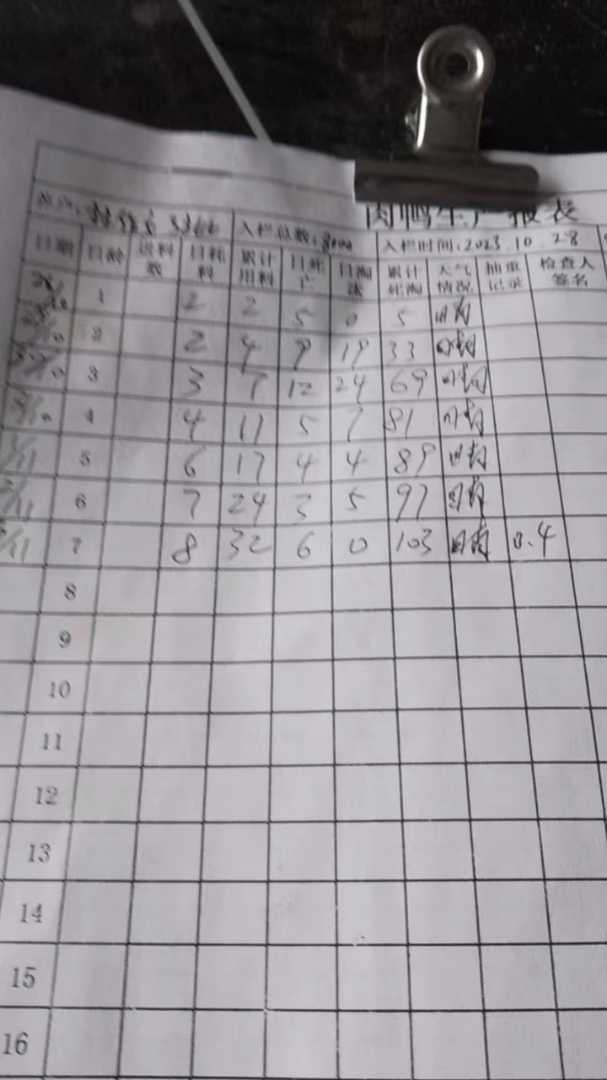 肉鸭生产报表
入栏总数: 8000 入栏时间: 2023.10.28
日期 日龄 进料数 日耗料 累计用料 日死亡 日淘汰 累计死淘 天气情况 抽重记录 检查人签名
1 2 2 5 0 5 晴
2 2 4 9 19 33 晴
3 3 7 12 24 69 晴
4 4 11 5 7 81 晴
5 6 17 4 4 89 晴
6 7 24 3 5 97 晴
7 8 32 6 0 103 晴 0.4
8
9
10
11
12
13
14
15
16